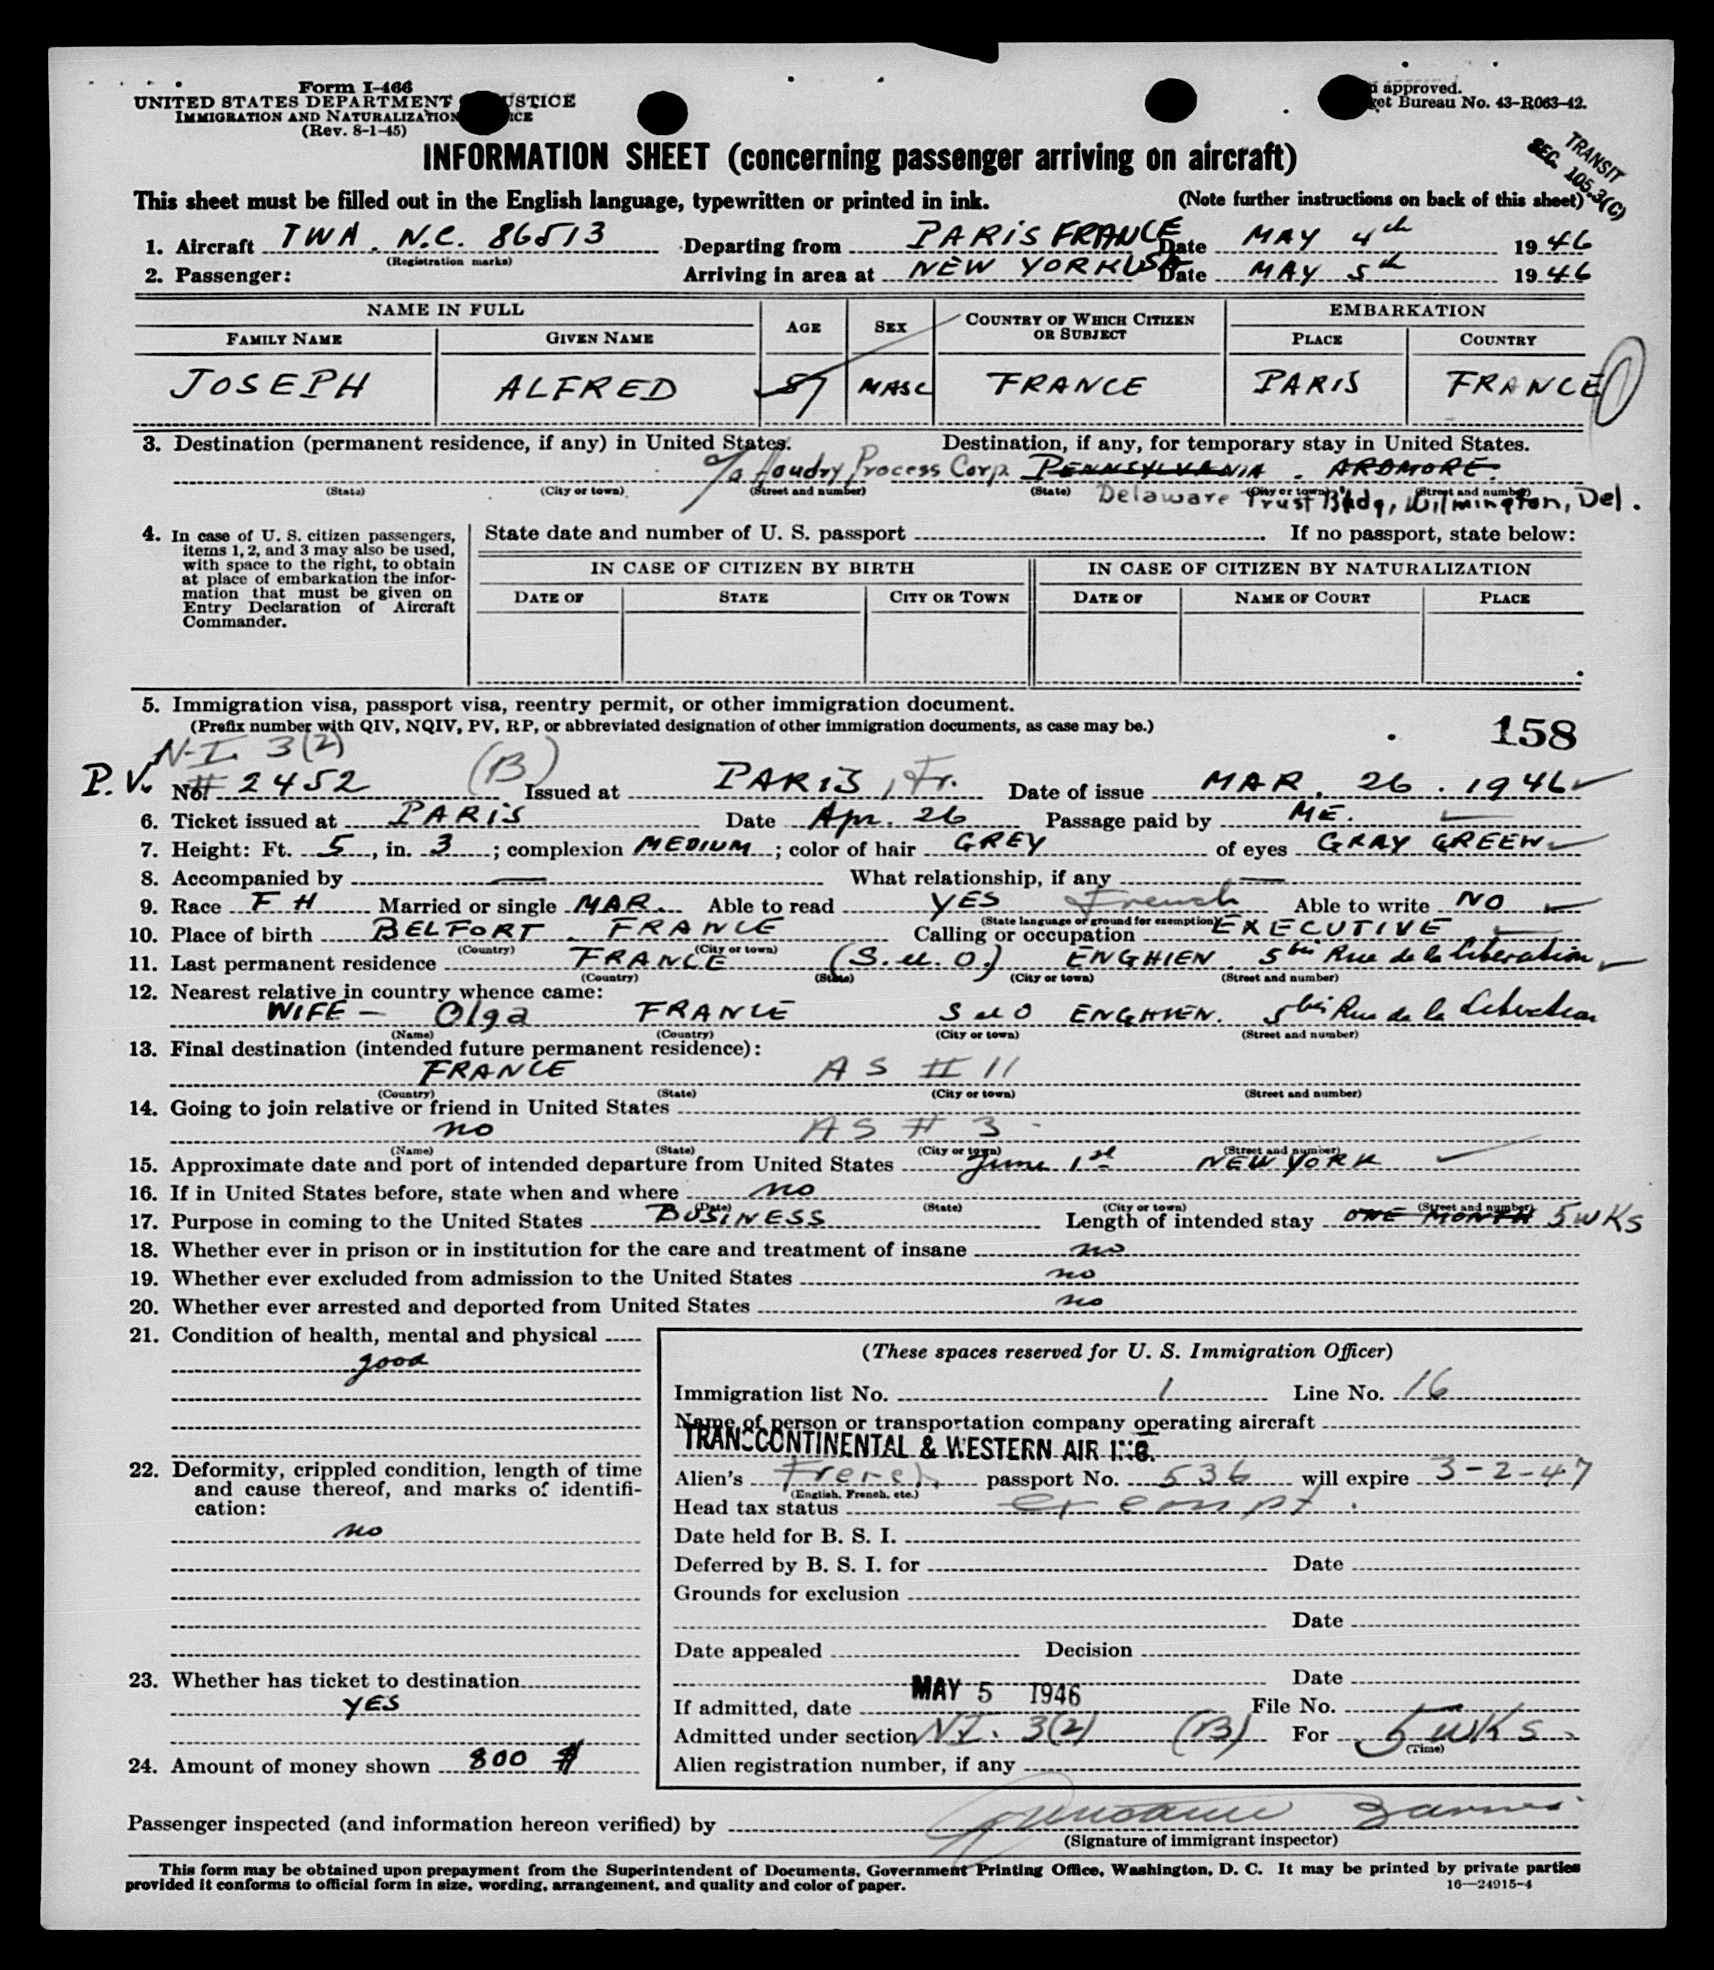 Form I-466
UNITED STATES DEPARTMENT JUSTICE
IMMIGRATION AND NATURALIZATION
(Rev. 8-1-45)
approved.
Bureau No. 43-R063-42.
INFORMATION SHEET (concerning passenger arriving on aircraft)
TRANSIT
SEC. 105.3(C)
This sheet must be filled out in the English language, typewritten or printed in ink. (Note further instructions on back of this sheet)
1. Aircraft TWA. N.C. 86513 Departing from PARIS FRANCE Date MAY 4th 1946
(Registration marks)
2. Passenger: Arriving in area at NEW YORK USA Date MAY 5th 1946
NAME IN FULL AGE SEX COUNTRY OF WHICH CITIZEN OR SUBJECT EMBARKATION
FAMILY NAME GIVEN NAME PLACE COUNTRY
JOSEPH ALFRED 57 MASC FRANCE PARIS FRANCE
3. Destination (permanent residence, if any) in United States. Destination, if any, for temporary stay in United States.
c/o Houdry Process Corp. PENNSYLVANIA. ARDMORE.
(State) (City or town) (Street and number) (State) (City or town) (Street and number)
Delaware Trust Bldg, Wilmington, Del.
4. In case of U. S. citizen passengers, items 1, 2, and 3 may also be used, with space to the right, to obtain at place of embarkation the information that must be given on Entry Declaration of Aircraft Commander.
State date and number of U. S. passport If no passport, state below:
IN CASE OF CITIZEN BY BIRTH IN CASE OF CITIZEN BY NATURALIZATION
DATE OF STATE CITY OR TOWN DATE OF NAME OF COURT PLACE
5. Immigration visa, passport visa, reentry permit, or other immigration document.
(Prefix number with QIV, NQIV, PV, RP, or abbreviated designation of other immigration documents, as case may be.)
158
N-I. 3(2) (B)
P.V. No. # 2452 Issued at PARIS, Fr. Date of issue MAR. 26. 1946
6. Ticket issued at PARIS Date Apr. 26 Passage paid by ME.
7. Height: Ft. 5, in. 3; complexion MEDIUM; color of hair GREY of eyes GRAY GREEN
8. Accompanied by — What relationship, if any —
9. Race FH Married or single MAR. Able to read YES French Able to write NO
(State language or ground for exemption)
10. Place of birth BELFORT. FRANCE Calling or occupation EXECUTIVE
(Country) (City or town)
11. Last permanent residence FRANCE (S. et. O.) ENGHIEN 5bis Rue de la Liberation
(Country) (State) (City or town) (Street and number)
12. Nearest relative in country whence came:
WIFE - Olga FRANCE S et O ENGHIEN. 5bis Rue de la Liberation
(Name) (Country) (City or town) (Street and number)
13. Final destination (intended future permanent residence):
FRANCE AS # 11
(Country) (State) (City or town) (Street and number)
14. Going to join relative or friend in United States
no AS # 3
(Name) (State) (City or town) (Street and number)
15. Approximate date and port of intended departure from United States June 1st NEW YORK
16. If in United States before, state when and where no
(Date) (State) (City or town) (Street and number)
17. Purpose in coming to the United States BUSINESS Length of intended stay ONE MONTH 5 WKS
18. Whether ever in prison or in institution for the care and treatment of insane no
19. Whether ever excluded from admission to the United States no
20. Whether ever arrested and deported from United States no
21. Condition of health, mental and physical
good
22. Deformity, crippled condition, length of time and cause thereof, and marks of identification:
no
23. Whether has ticket to destination
YES
24. Amount of money shown 800 $
(These spaces reserved for U. S. Immigration Officer)
Immigration list No. 1 Line No. 16
Name of person or transportation company operating aircraft
TRANSCONTINENTAL & WESTERN AIR INC.
Alien's French passport No. 536 will expire 3-2-47
(English, French, etc.)
Head tax status exempt.
Date held for B. S. I.
Deferred by B. S. I. for Date
Grounds for exclusion
Date
Date appealed Decision
Date
If admitted, date MAY 5 1946 File No.
Admitted under section NI. 3(2) (B) For 5 WKS
(Time)
Alien registration number, if any
Passenger inspected (and information hereon verified) by
(Signature of immigrant inspector)
This form may be obtained upon prepayment from the Superintendent of Documents, Government Printing Office, Washington, D. C. It may be printed by private parties
provided it conforms to official form in size, wording, arrangement, and quality and color of paper. 16—24915-4